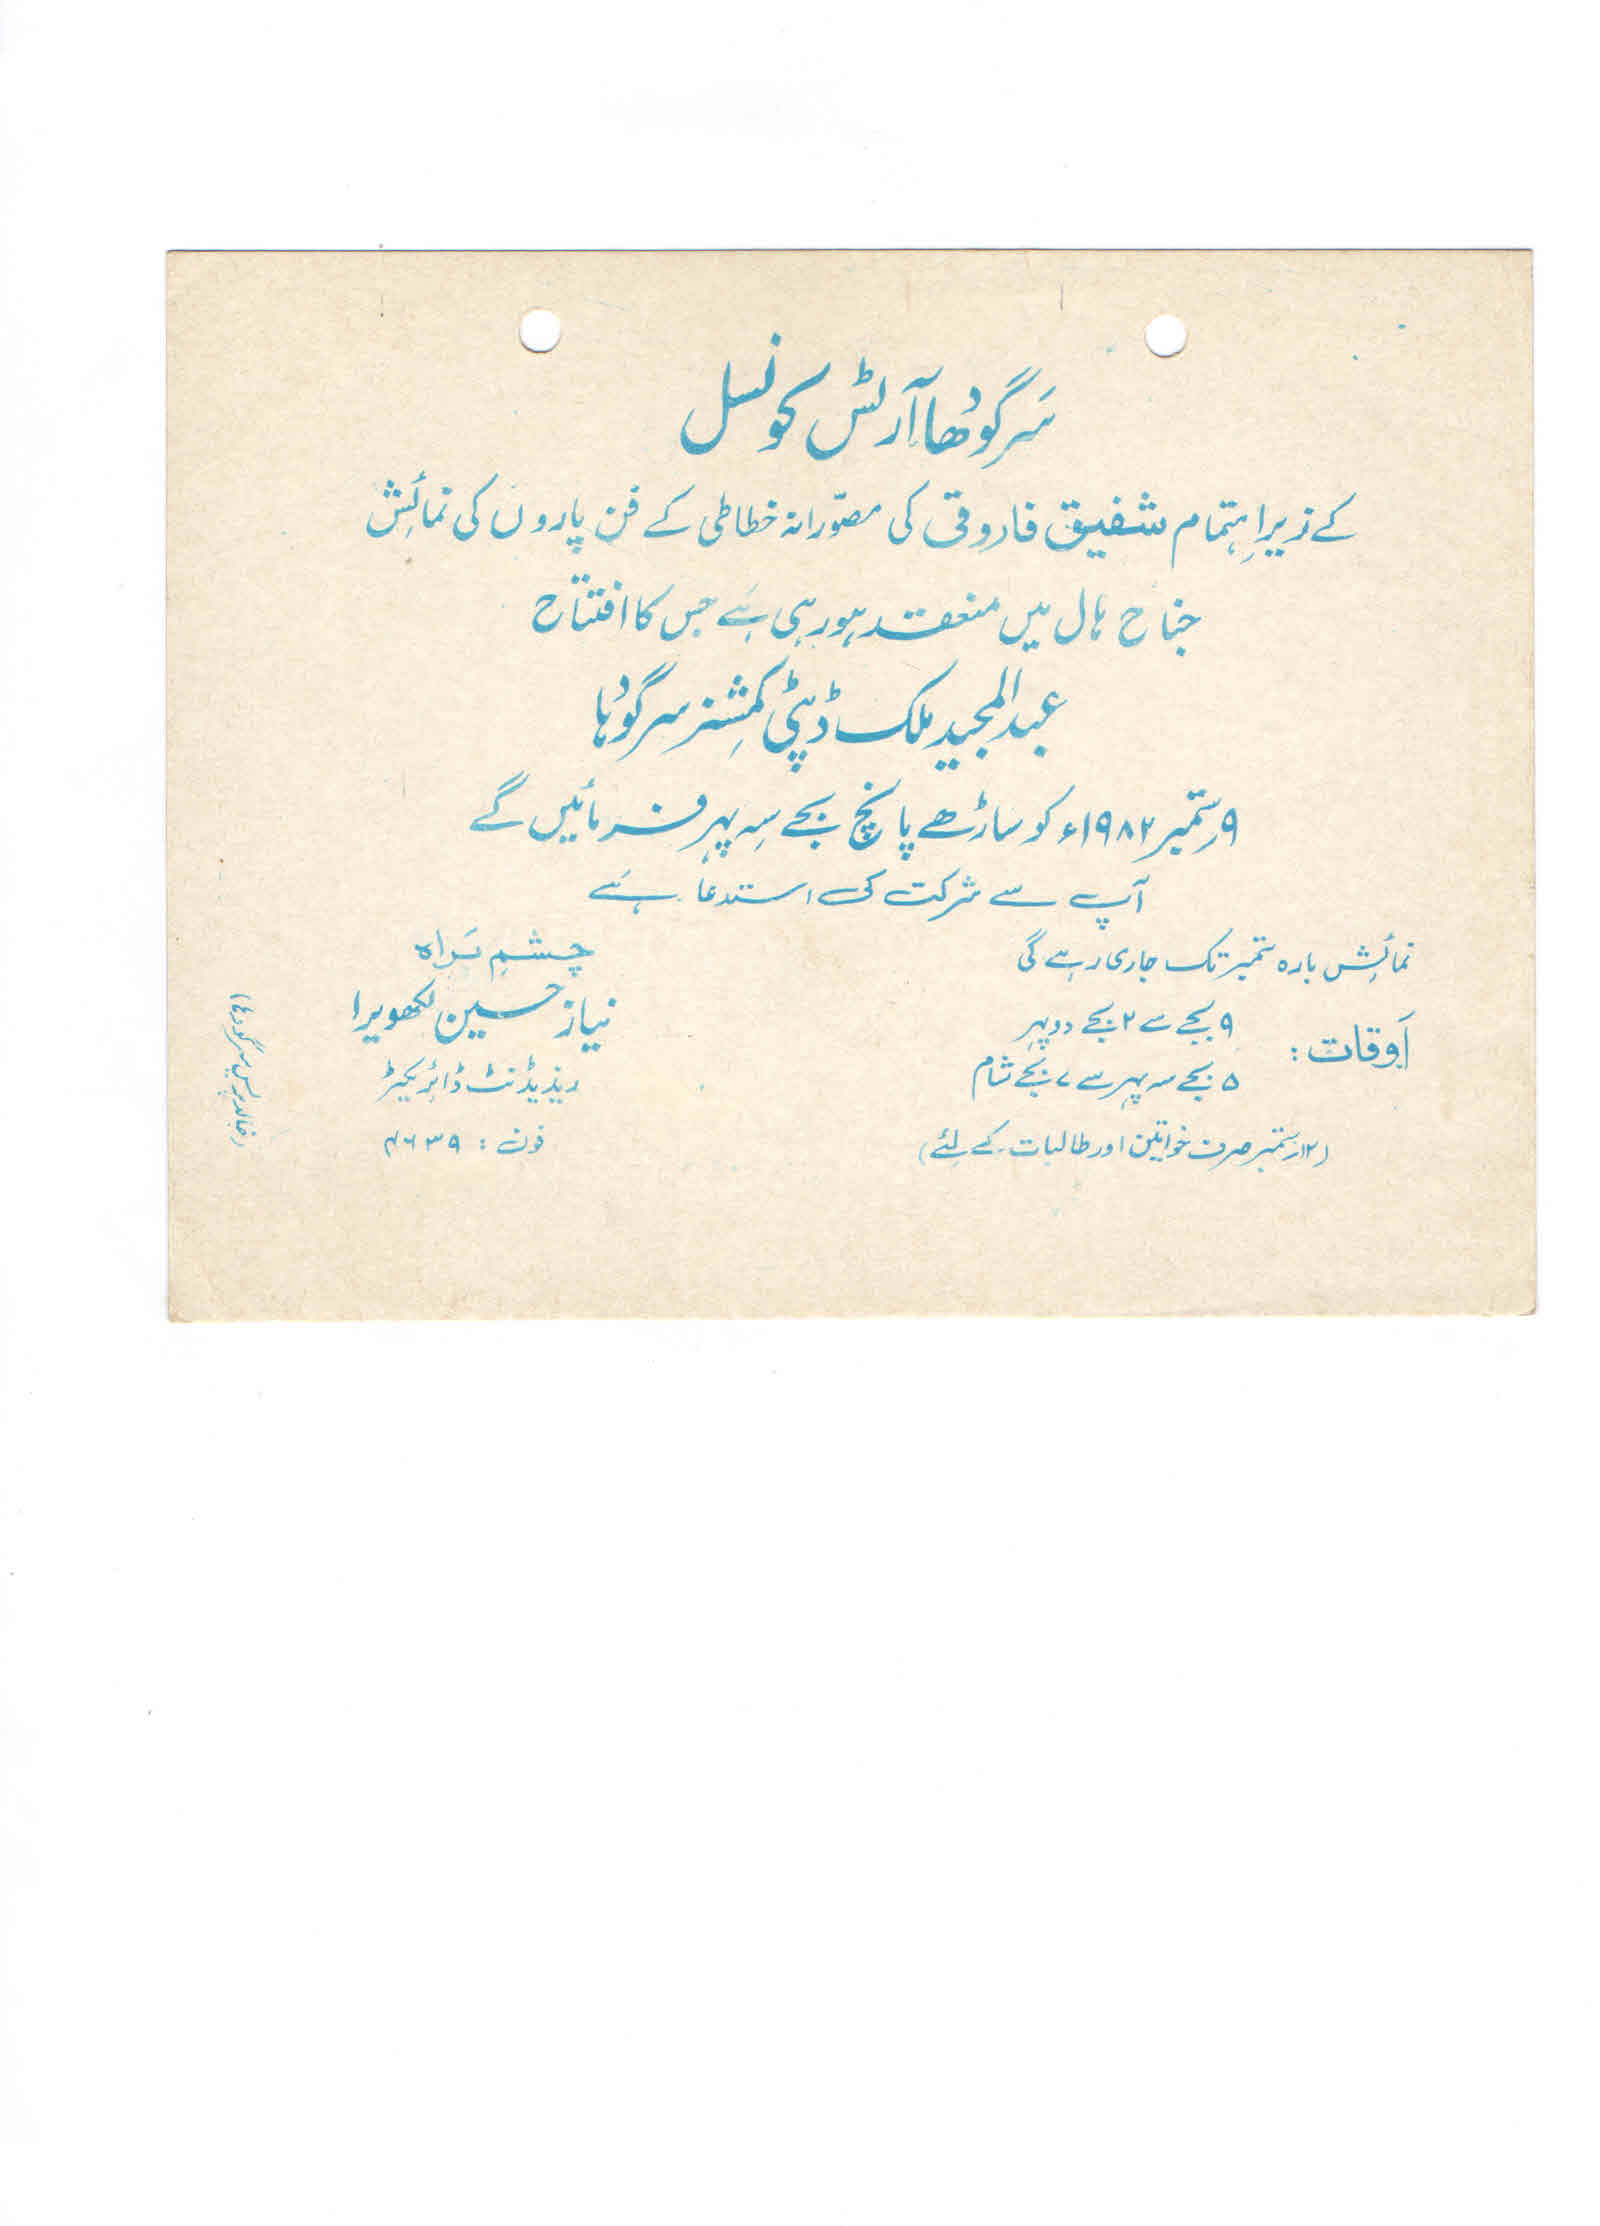 سَرگودھا آرٹس کونسل
کے زیرِ اہتمام شفیق فاروقی کی مصوّرانہ خطاطی کے فن پاروں کی نمائش
جناح ہال میں منعقد ہو رہی ہے جس کا افتتاح
عبدالمجید ملک ڈپٹی کمشنر سرگودہا
۹ ستمبر ۱۹۸۲ء کو ساڑھے پانچ بجے سہ پہر فرمائیں گے
آپ سے شرکت کی استدعا ہے
نمائش بارہ ستمبر تک جاری رہے گی
اَوقات:
۹ بجے سے ۲ بجے دوپہر
۵ بجے سہ پہر سے ۷ بجے شام
(۱۲ ستمبر صرف خواتین اور طالبات کے لئے)
چشم براہ
نیاز حسین لکھویرا
ریذیڈنٹ ڈائریکٹر
فون: ۴۶۳۹
(خالد پریس سرگودھا)